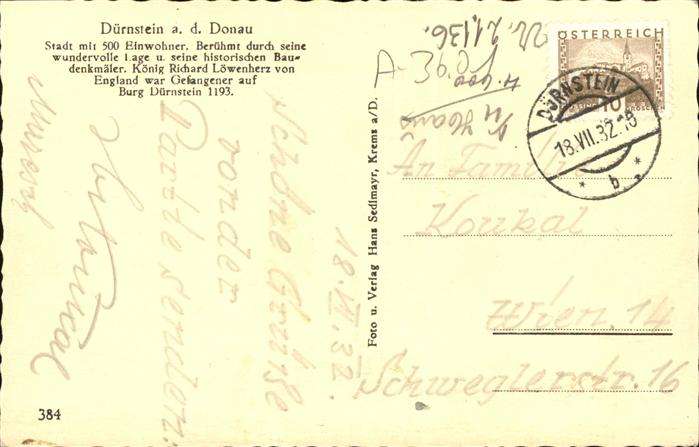 Dürnstein a. d. Donau
Stadt mit 500 Einwohner. Berühmt durch seine
wundervolle Lage u. seine historischen Bau-
denkmäler. König Richard Löwenherz von
England war Gefangener auf
Burg Dürnstein 1193.
18.VII.32.
Schöne Grüße
von der
senden
384
Foto u. Verlag Hans Sedlmayr, Krems a/D.
ÖSTERREICH
10
DÜRNSTEIN
18.VII.32.18
* b *
An Familie
Koukal
Wien. 14
Schweglerstr. 16